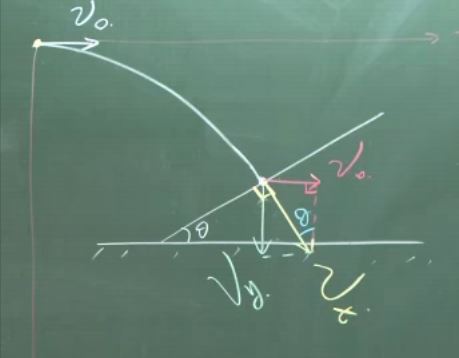 v₀.
v₀.
θ
θ
v_y.
v_t.